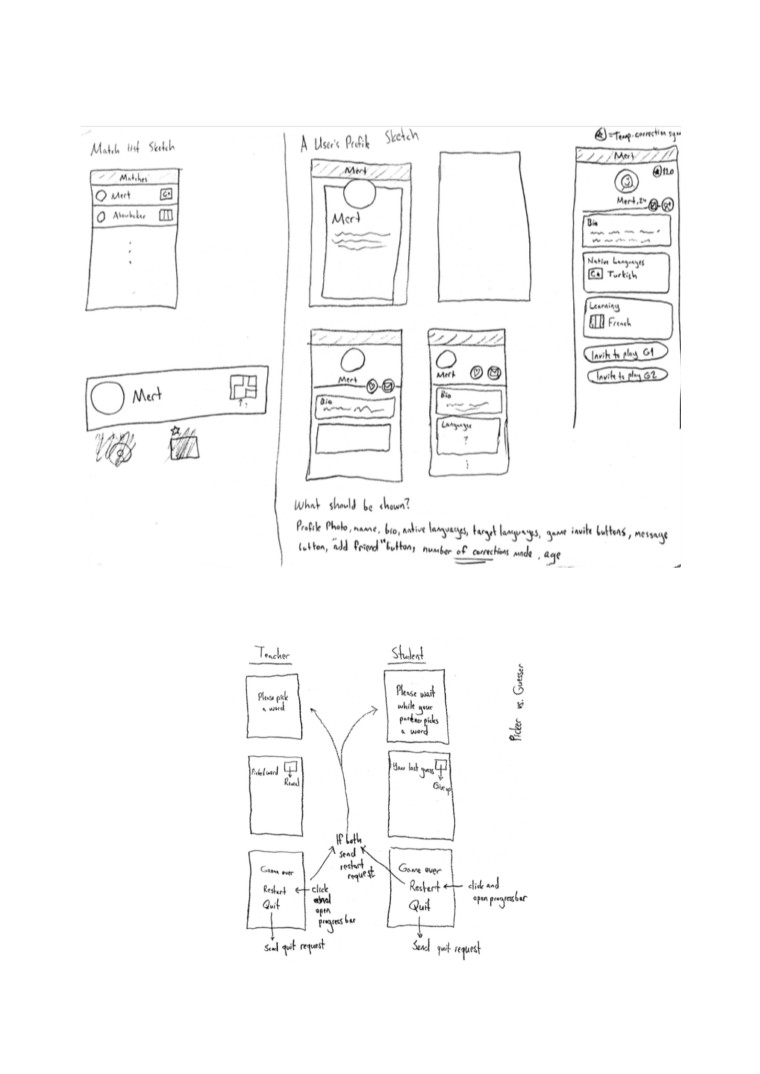 Match list Sketch
Matches
Mert
Mert
A User's Profile Sketch
Mert
Mert
Mert
Bio
Mert
Bio
Languages
?
=Temp. correction
Mert
120
Mert, 24
Bio
Native Languages
C* Turkish
Learning
French
Invite to play G1
Invite to play G2
What should be shown?
Profile Photo, name, bio, native languages, target languages, game invite buttons, message
button, "add friend" button, number of corrections made, age
Teacher
Please pick
a word
Picked word
Reveal
Game over
Restart
Quit
click
and
open
progress bar
Send quit request
If both
send
restart
request
Student
Please wait
while your
partner picks
a word
Your last guess
Give up
Game over
Restart
Quit
click and
open progress bar
Send quit request
Picker vs. Guesser